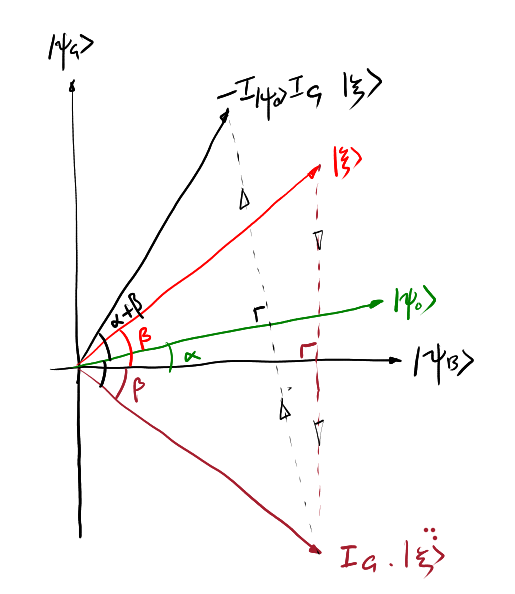 |ψG>
-I|ψ0>IG |ξ>
|ξ>
α+β
β
|ψ0>
α
|ψB>
β
IG . |ξ>